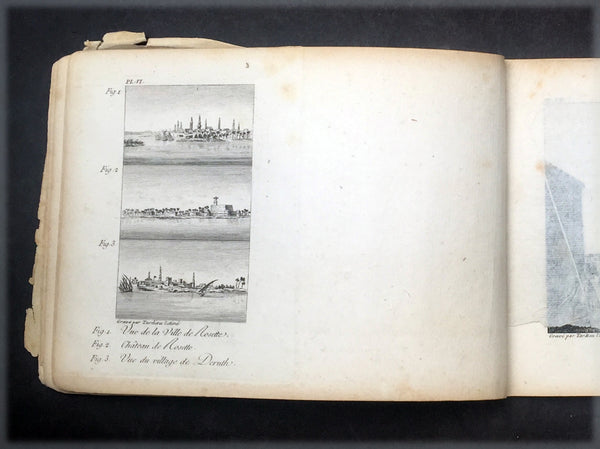 3
PL. VI.
Fig 1
Fig. 2
Fig. 3.
Gravé par Tardieu l'aîné
Fig. 1. Vue de la Ville de Rosette.
Fig. 2. Château de Rosette
Fig. 3. Vue du village de Deruth.
Gravé par Tardieu